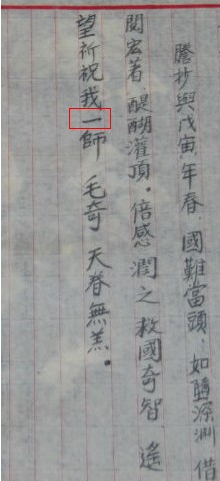 謄抄與戊寅年春．國難當頭．如墮深淵 借
閱宏著 醍醐灌頂．倍感潤之救國奇智 遙
望祈祝我一師 毛奇 天眷無羔．